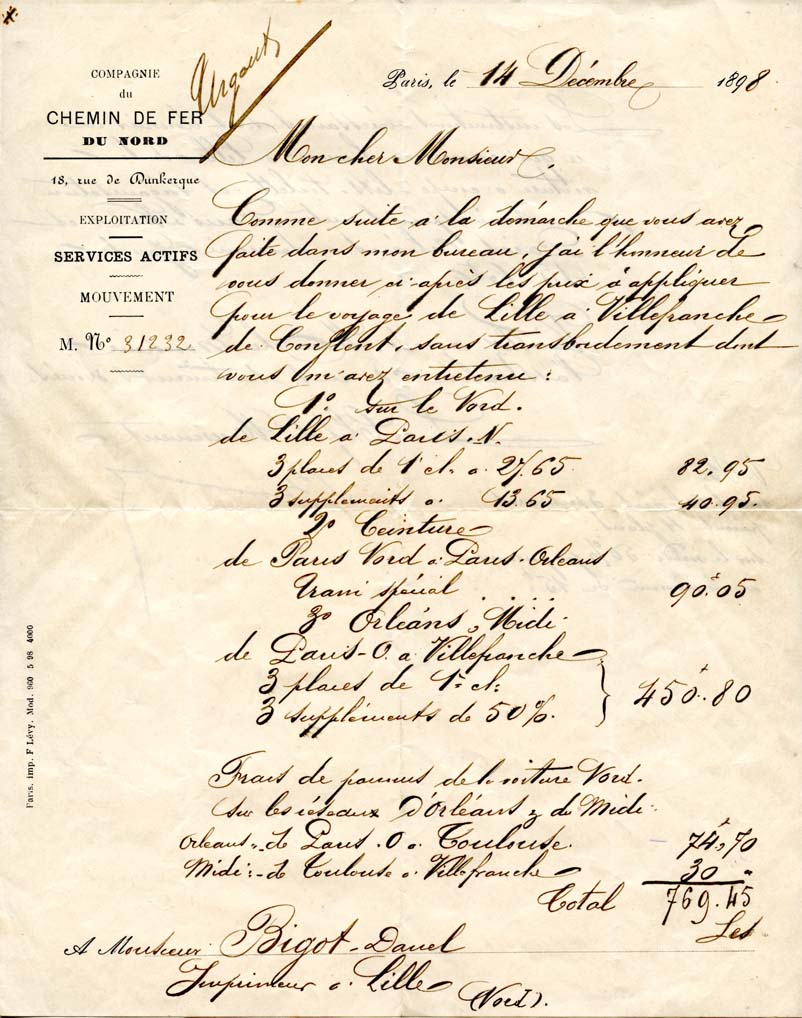 COMPAGNIE
du
CHEMIN DE FER
DU NORD
18, rue de Dunkerque
EXPLOITATION
SERVICES ACTIFS
MOUVEMENT
M. No 31232
Urgent
Paris, le 14 Décembre 1898
Mon cher Monsieur,
Comme suite à la démarche que vous avez
faite dans mon bureau, j'ai l'honneur de
vous donner ci-après les prix à appliquer
pour le voyage de Lille à Villefranche
de Conflent, sans transbordement dont
vous m'avez entretenu :
1o sur le Nord.
de Lille à Paris-N.
3 places de 1e cl. à 27.65 82.95
3 suppléments à 13.65 40.95.
2o Ceinture
de Paris Nord à Paris-Orléans
Train spécial . . . . 90.05
3o Orléans, Midi
de Paris-O. à Villefranche
3 places de 1re cl.
3 suppléments de 50%. } 450.80
Frais de parcours de la voiture Nord.
sur les réseaux d'Orléans & du Midi.
Orléans - de Paris.O à Toulouse. 74,70
Midi : - de Toulouse à Villefranche 30 "
Total 769.45
Les
A Monsieur Bigot-Danel
Imprimeur à Lille
(Nord).
Paris. imp. F Lévy. Mod. 960 5 98 4000